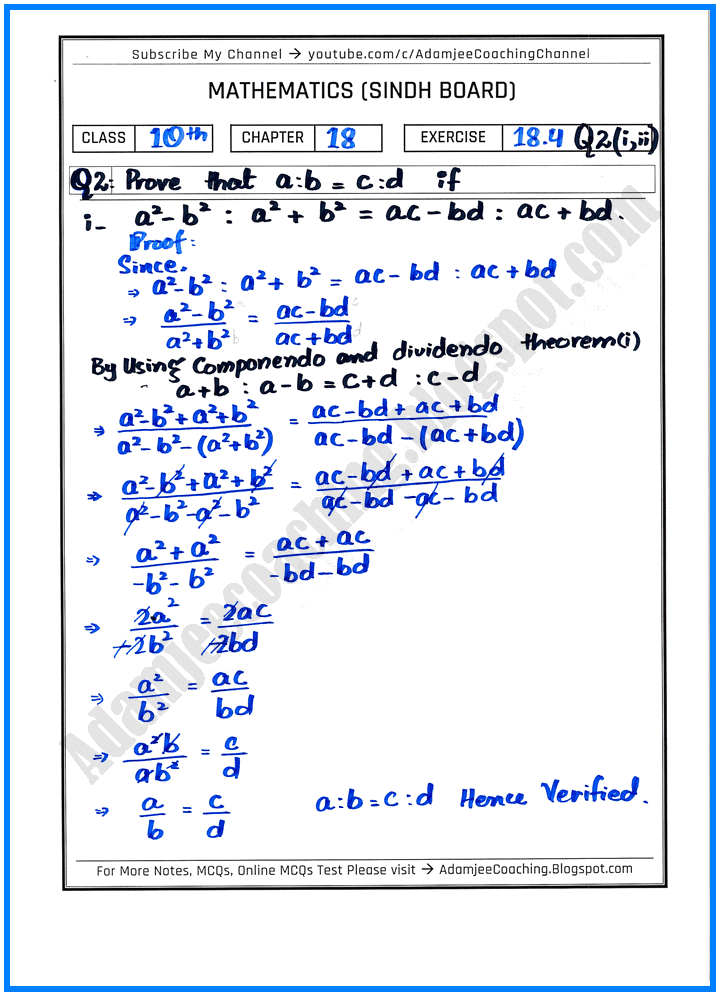 Subscribe My Channel → youtube.com/c/AdamjeeCoachingChannel
MATHEMATICS (SINDH BOARD)
CLASS 10th CHAPTER 18 EXERCISE 18.4 Q2(i,ii)
Q2: Prove that a:b = c:d if
i- a²-b² : a²+ b² = ac-bd : ac+bd.
Proof:
Since,
⇒ a²-b² : a²+ b² = ac-bd : ac+bd
⇒ a²-b²/a²+b² = ac-bd/ac+bd
By Using Componendo and dividendo theorem(i)
a+b : a-b = c+d : c-d
⇒ a²-b²+a²+b²/a²-b²-(a²+b²) = ac-bd+ac+bd/ac-bd-(ac+bd)
⇒ a²-b²+a²+b²/a²-b²-a²-b² = ac-bd+ac+bd/ac-bd-ac-bd
⇒ a²+a²/-b²-b² = ac+ac/-bd-bd
⇒ 2a²/-2b² = 2ac/-2bd
⇒ a²/b² = ac/bd
⇒ a²b/ab² = c/d
⇒ a/b = c/d a:b=c:d Hence Verified.
For More Notes, MCQs, Online MCQs Test Please visit → AdamjeeCoaching.Blogspot.com
Adamjeecoaching.blogspot.com